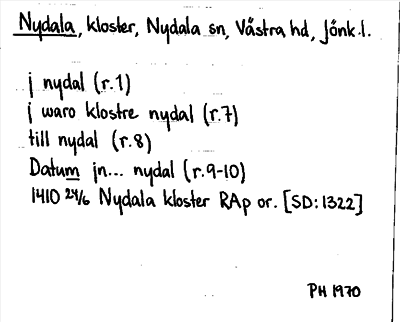 Nydala, kloster, Nydala sn, Västra hd, Jönk.l.
j nydal (r.1)
j waro klostre nydal (r.7)
till nydal (r.8)
Datum jn... nydal (r.9-10)
1410 24/6 Nydala kloster RAp or. [SD:1322]
PH 1970